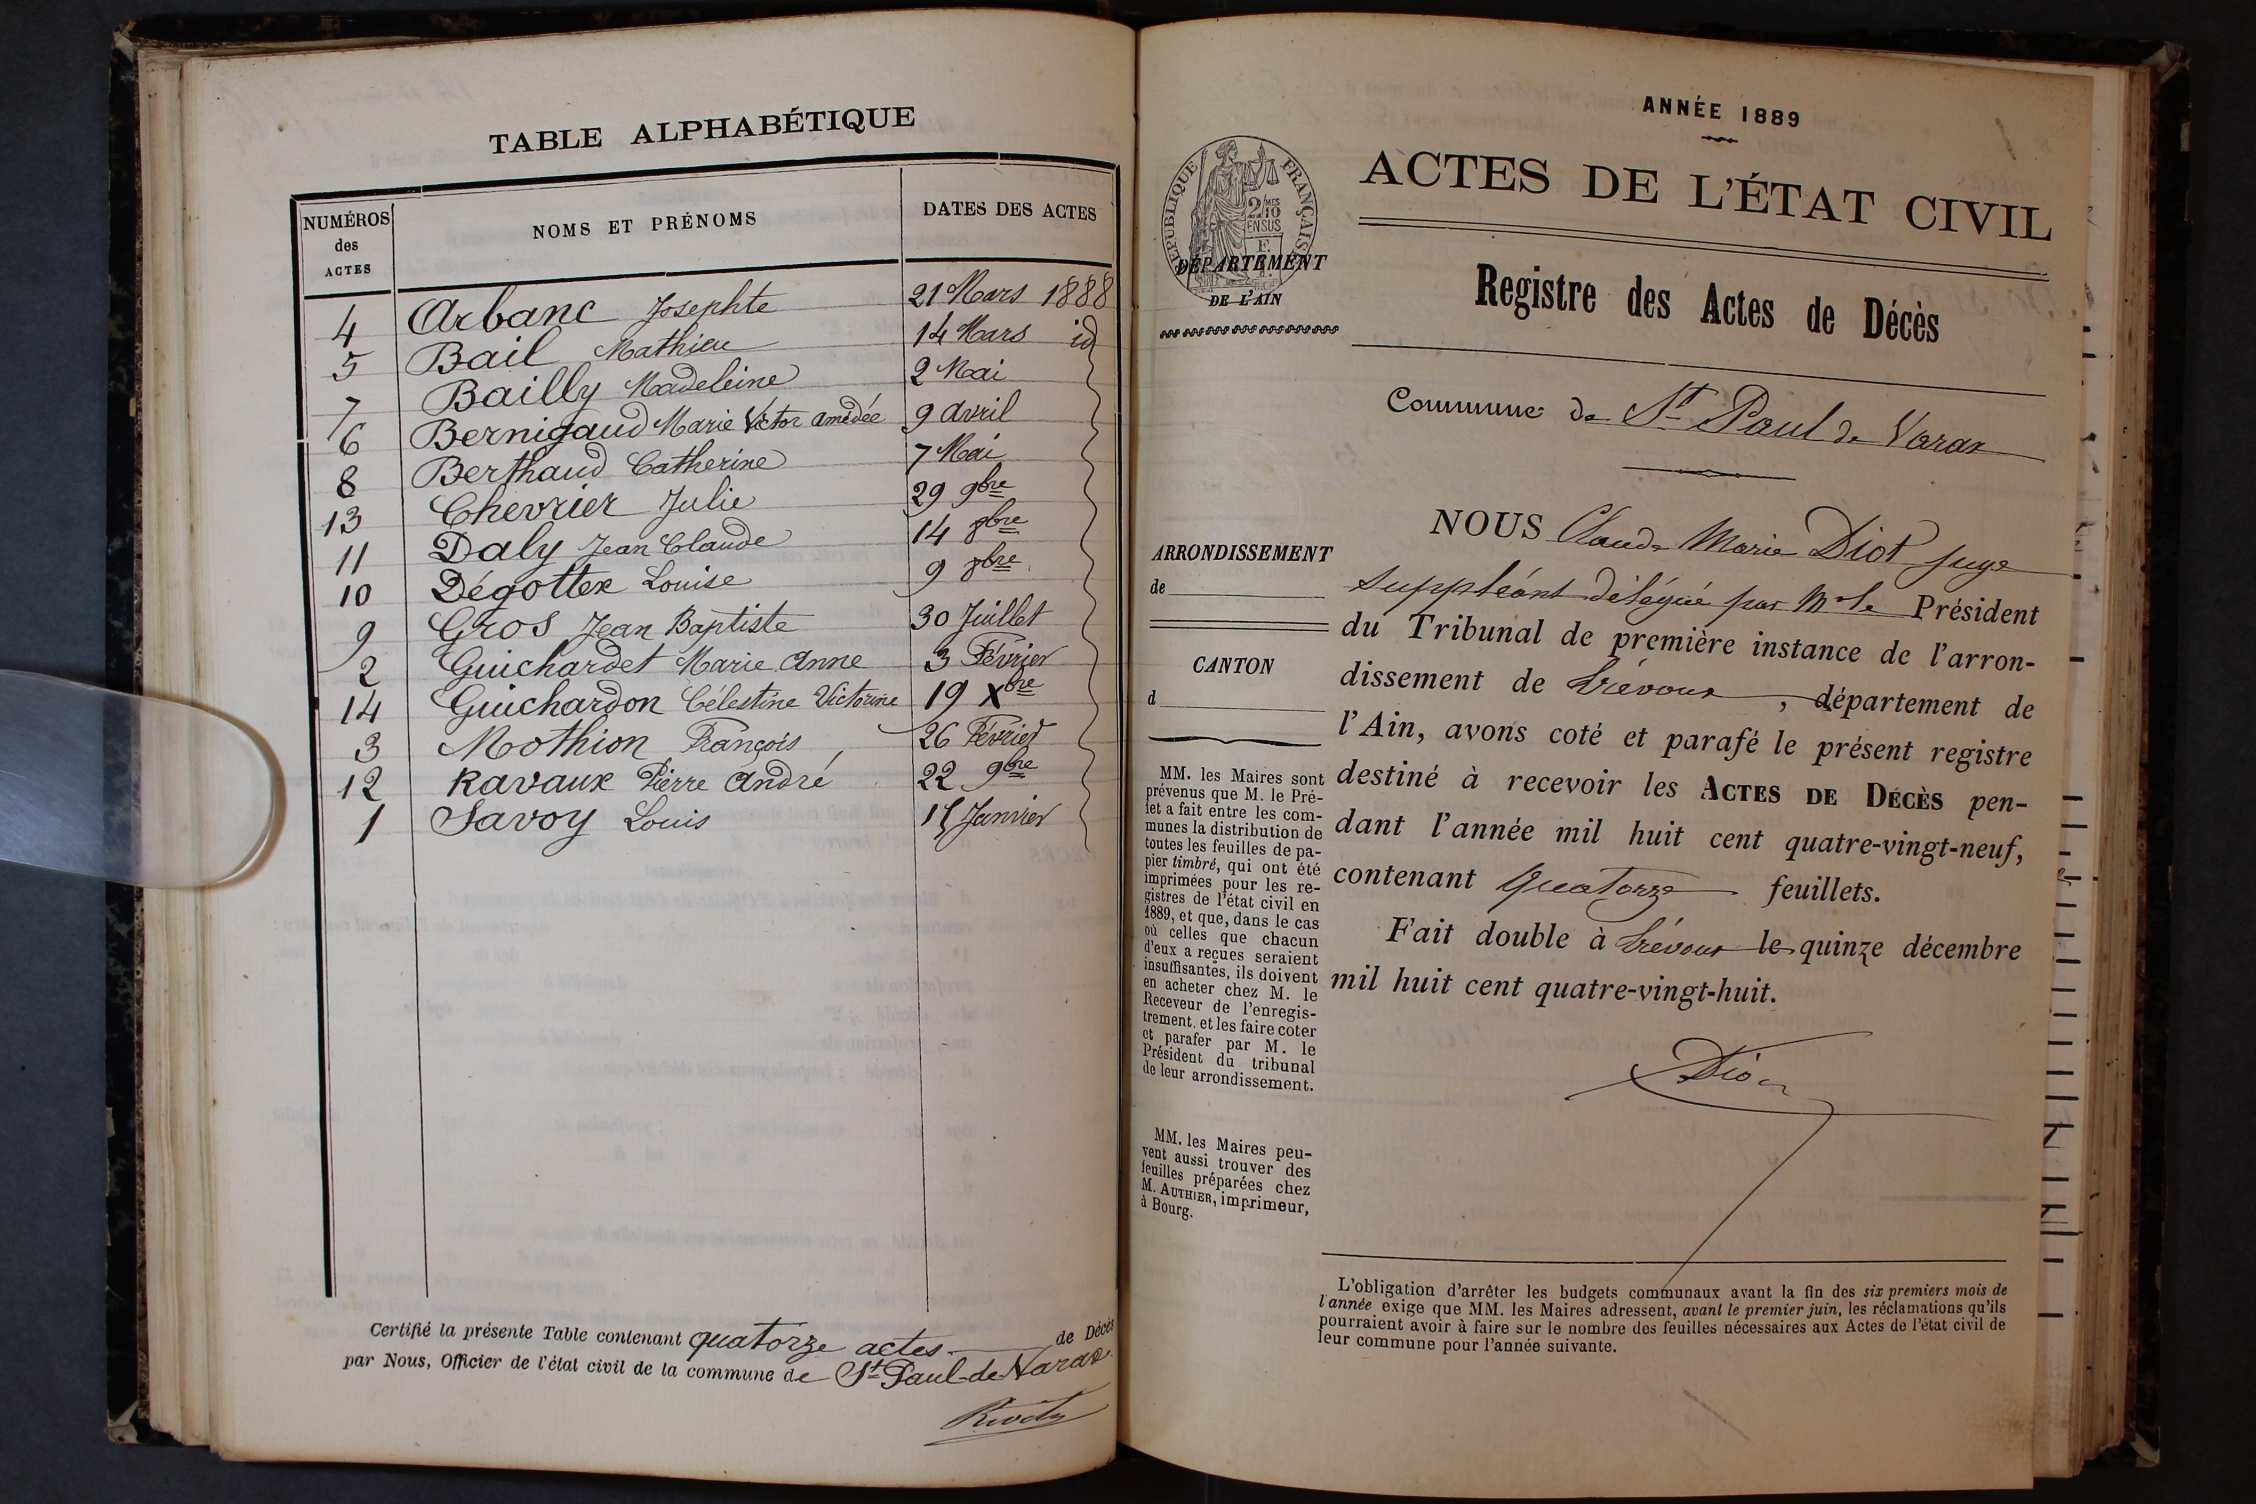 TABLE ALPHABÉTIQUE
NUMÉROS des ACTES
NOMS ET PRÉNOMS
DATES DES ACTES
4 Arbanc Josephte 21 Mars 1888
5 Bail Mathieu 14 Mars id
7 Bailly Madeleine 2 Mai
6 Bernigaud Marie Victor Amédée 9 Avril
8 Berthaud Catherine 7 Mai
13 Chevrier Julie 29 9bre
11 Daly Jean Claude 14 8bre
10 Dégottex Louise 9 8bre
9 Gros Jean Baptiste 30 Juillet
2 Guichardet Marie Anne 3 Février
14 Guichardon Célestine Victorine 19 Xbre
3 Mothion François 26 Février
12 Ravaux Pierre André 22 9bre
1 Savoy Louis Janvier
Certifié la présente Table contenant quatorze actes de Décès
par Nous, Officier de l'état civil de la commune de St Paul-de-Varax.
ANNÉE 1889
ACTES DE L'ÉTAT CIVIL
RÉPUBLIQUE FRANÇAISE
2/10 MES
EN SUS
DÉPARTEMENT
DE L'AIN
Registre des Actes de Décès
Commune de St Paul de Varax
ARRONDISSEMENT
de
CANTON
d
MM. les Maires sont
prévenus que M. le Pré-
fet a fait entre les com-
munes la distribution de
toutes les feuilles de pa-
pier timbré, qui ont été
imprimées pour les re-
gistres de l'état civil en
1889, et que, dans le cas
où celles que chacun
d'eux a reçues seraient
insuffisantes, ils doivent
en acheter chez M. le
Receveur de l'enregis-
trement, et les faire coter
et parafer par M. le
Président du tribunal
de leur arrondissement.
MM. les Maires peu-
vent aussi trouver des
feuilles préparées chez
M. AUTHIER, imprimeur,
à Bourg.
NOUS Claude Marie Diot juge
suppléant délégué par Mr le Président
du Tribunal de première instance de l'arron-
dissement de Trévoux, département de
l'Ain, avons coté et parafé le présent registre
destiné à recevoir les ACTES DE DÉCÈS pen-
dant l'année mil huit cent quatre-vingt-neuf,
contenant Quatorze feuillets.
Fait double à Trévoux le quinze décembre
mil huit cent quatre-vingt-huit.
Diot
L'obligation d'arrêter les budgets communaux avant la fin des six premiers mois de
l'année exige que MM. les Maires adressent, avant le premier juin, les réclamations qu'ils
pourraient avoir à faire sur le nombre des feuilles nécessaires aux Actes de l'état civil de
leur commune pour l'année suivante.